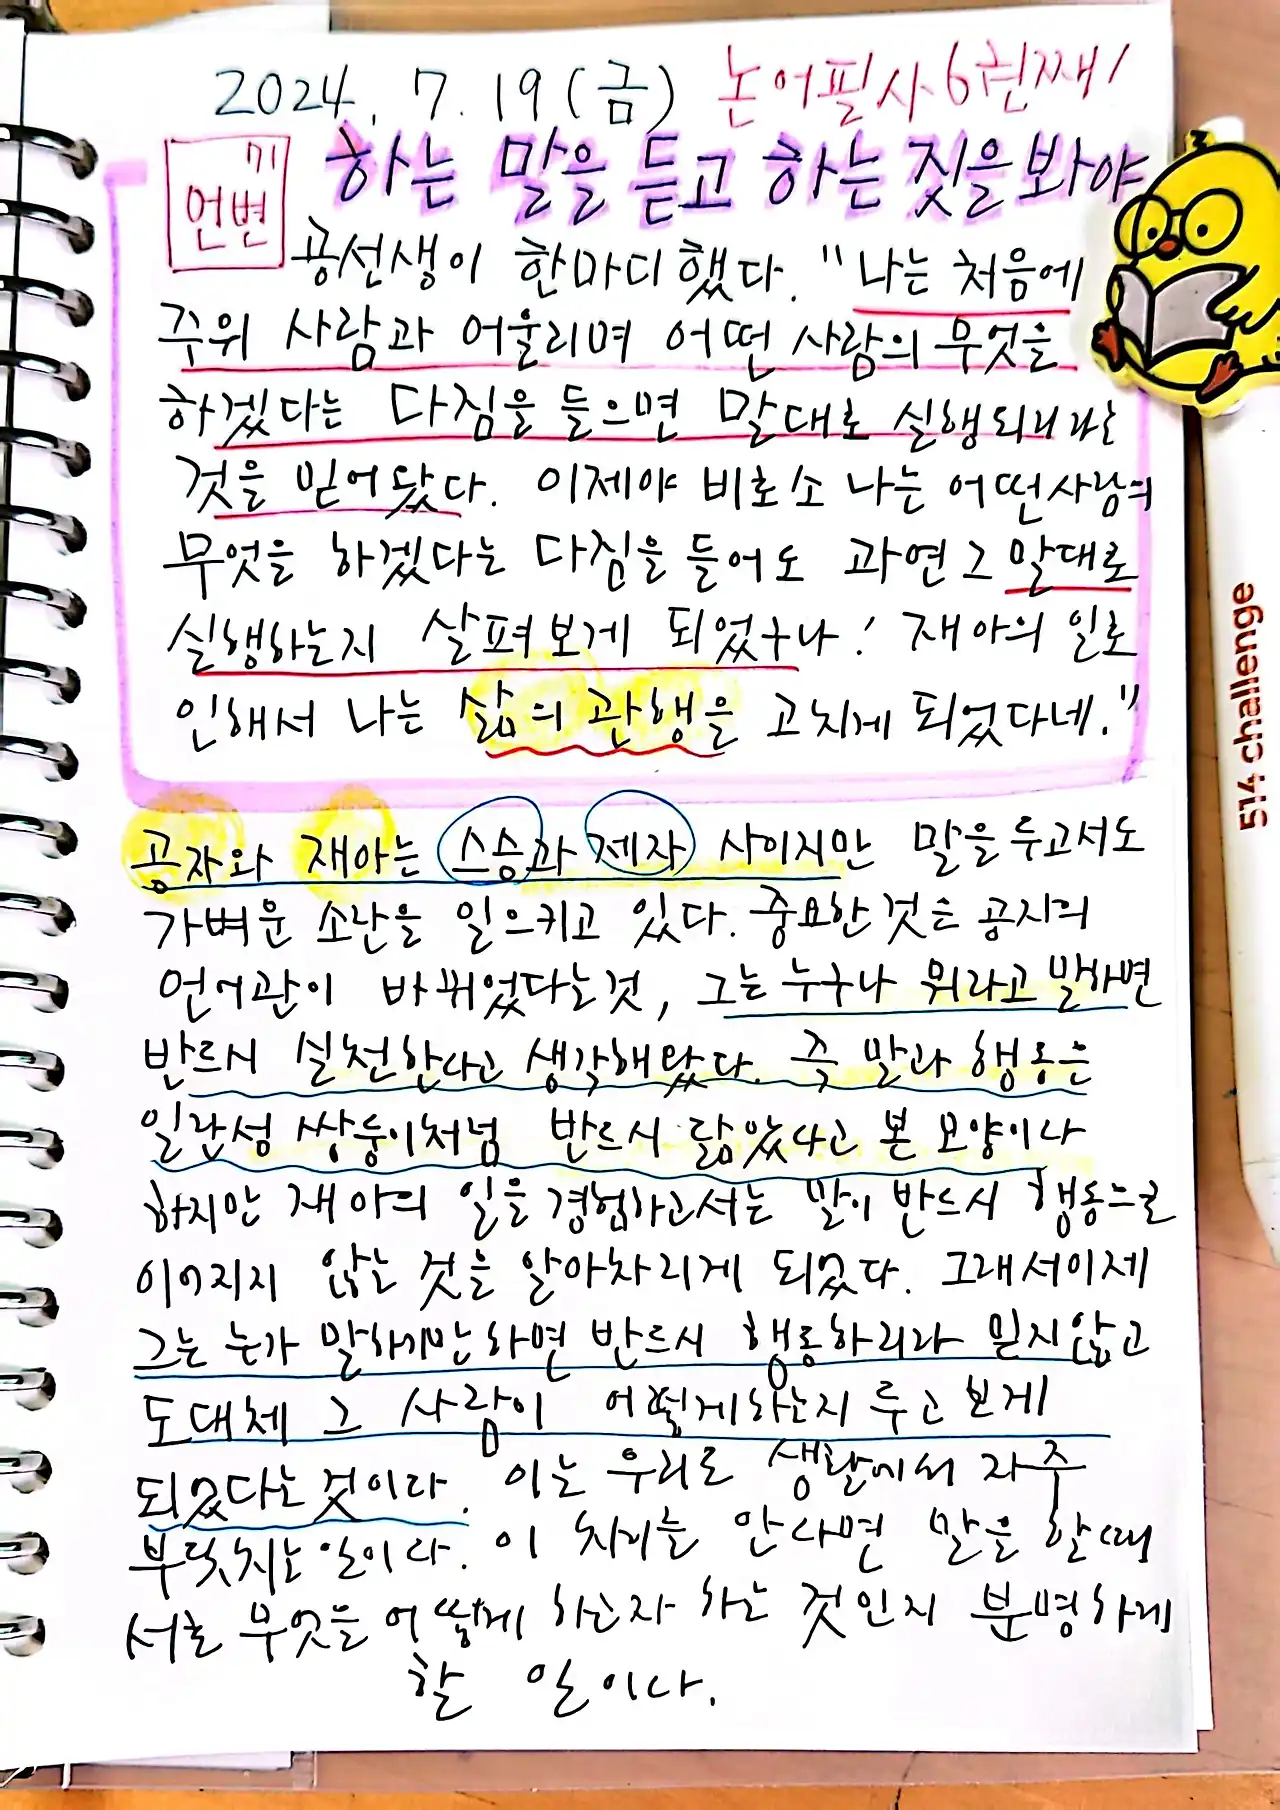 2024. 7. 19 (금) 논어필사 6권째!
71
언변
하는 말을 듣고 하는 짓을 봐야
공선생이 한마디 했다. "나는 처음에
주위 사람과 어울리며 어떤 사람의 무엇을
하겠다는 다짐을 들으면 말대로 실행되리라는
것을 믿어왔다. 이제야 비로소 나는 어떤 사람의
무엇을 하겠다는 다짐을 들어도 과연 그 말대로
실행하는지 살펴보게 되었구나! 재아의 일로
인해서 나는 삶의 관행을 고치게 되었다네."
공자와 재아는 스승과 제자 사이지만 말을 두고서도
가벼운 소란을 일으키고 있다. 중요한 것은 공자의
언어관이 바뀌었다는 것, 그는 누구나 뭐라고 말하면
반드시 실천한다고 생각해왔다. 즉 말과 행동은
일란성 쌍둥이처럼 반드시 닮았다고 본 모양이나
하지만 재아의 일을 경험하고서는 말이 반드시 행동으로
이어지지 않는 것을 알아차리게 되었다. 그래서 이제
그는 누가 말하기만 하면 반드시 행동하리라 믿지 않고
도대체 그 사람이 어떻게 하는지 두고 보게
되었다는 것이다. 이는 우리도 생활에서 자주
부딪치는 일이다. 이 차이를 안다면 말을 할 때
서로 무엇을 어떻게 하는자 하는 것인지 분명하게
할 일이다.
514 challenge